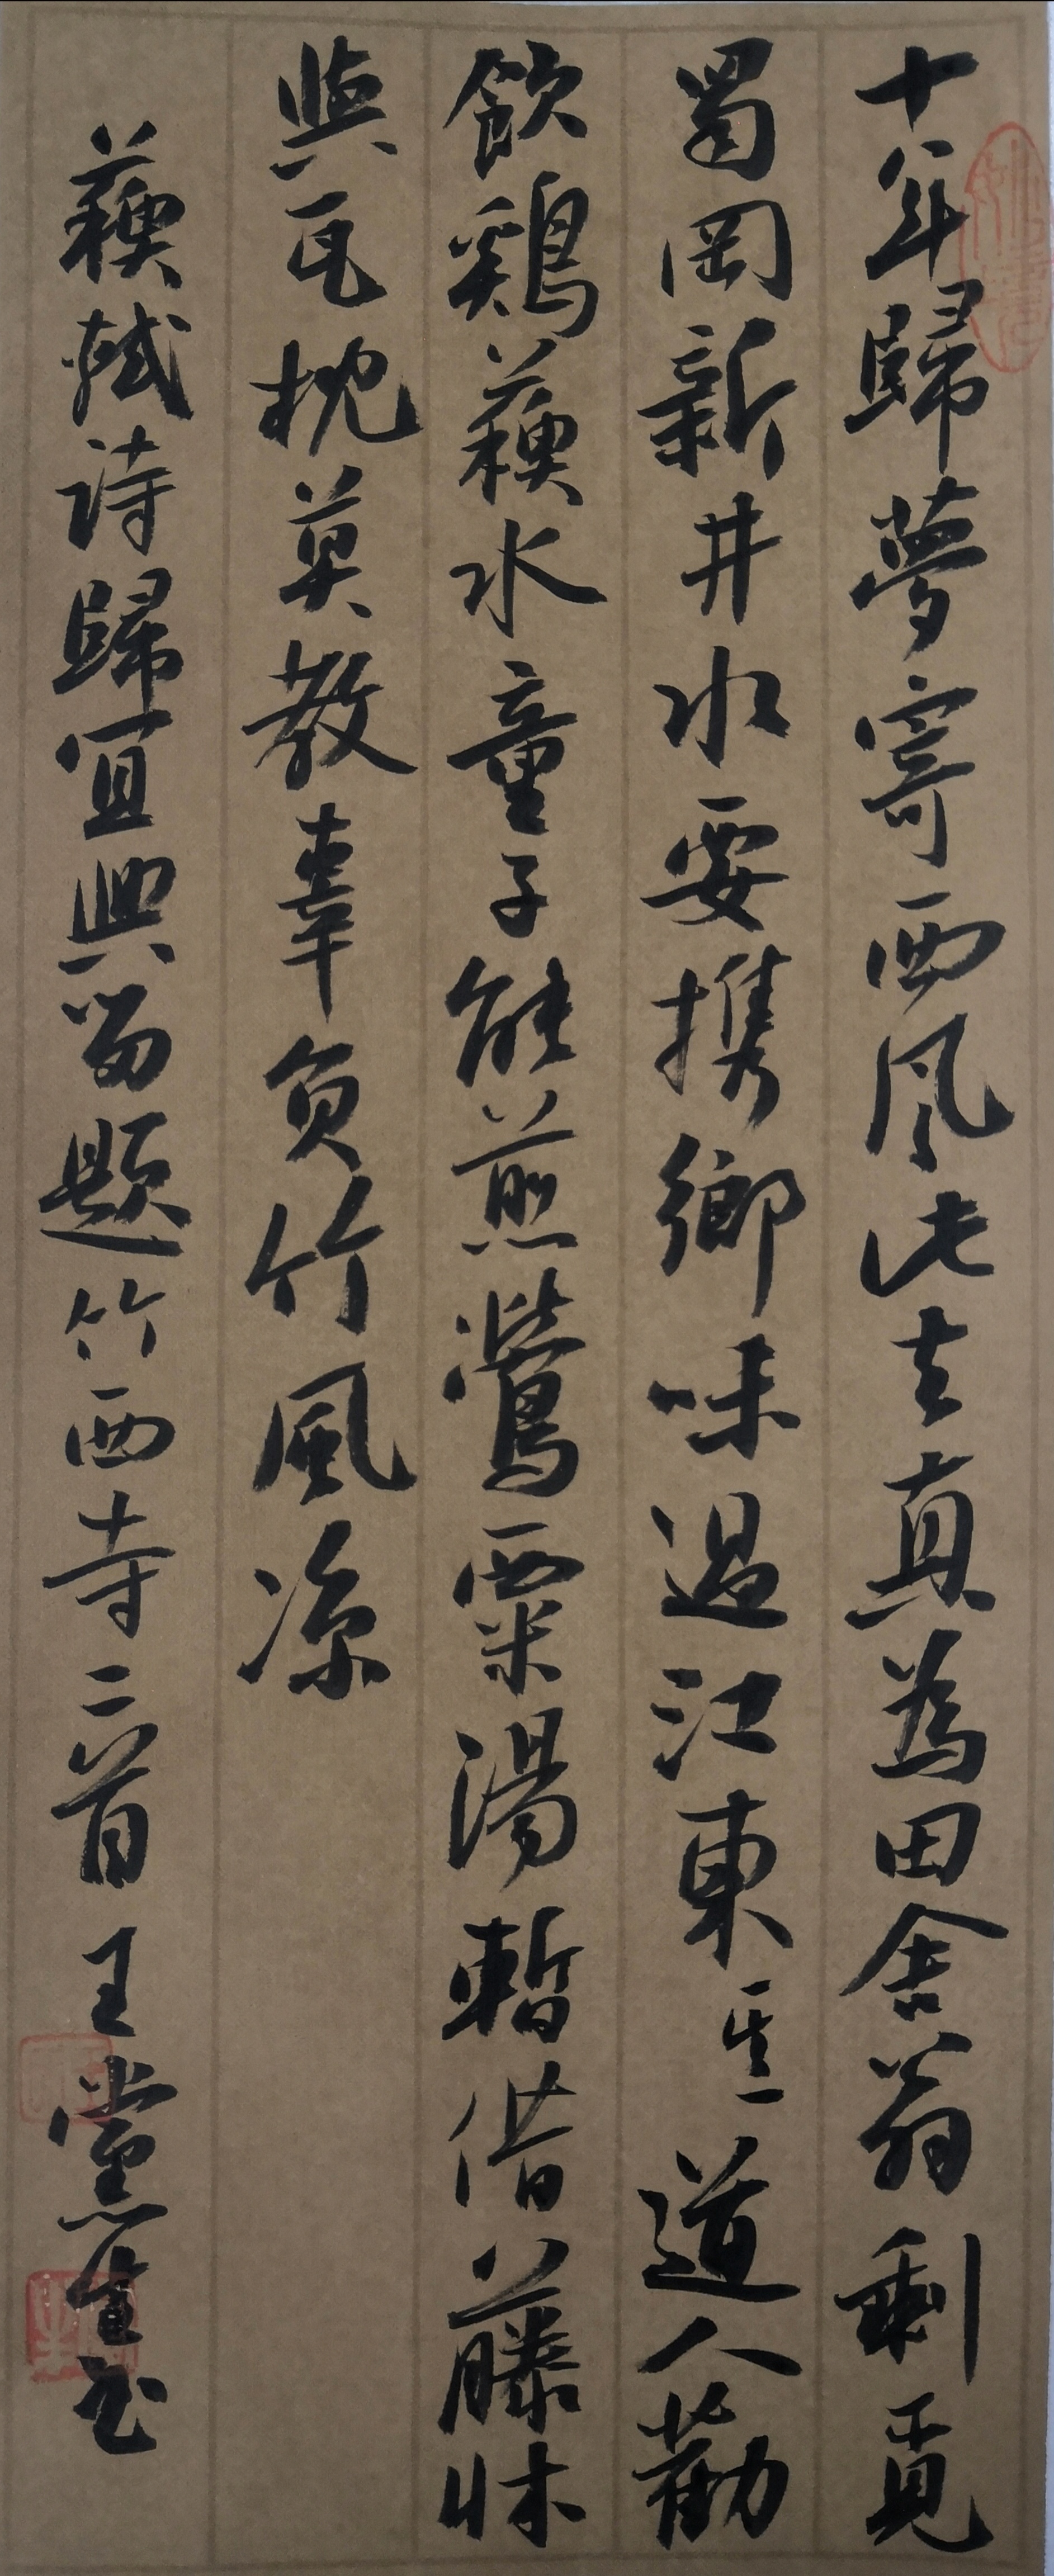 十年歸夢寄西風此去真為田舍翁剩覓
蜀岡新井水要攜鄉味過江東其二道人勸
飲鷄蘓水童子能煎鶯粟湯暫借藤牀
與瓦枕莫教辜負竹風涼
蘓軾詩歸宜興留題竹西寺二首王黨生书